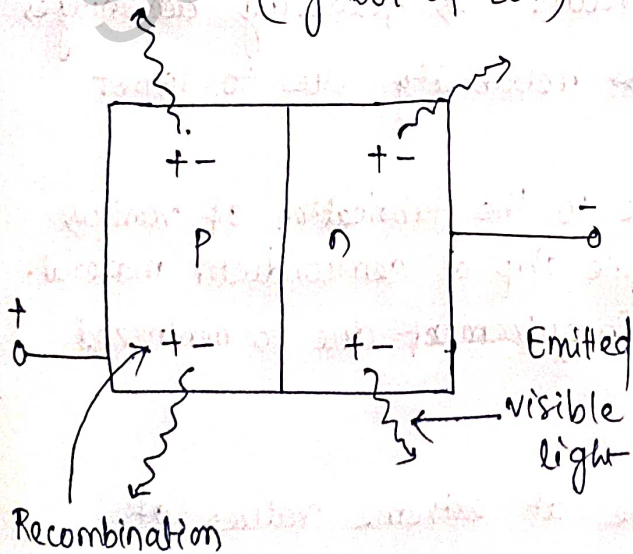 + - + -
P n
-
+
+ - + -
Emitted
visible
light
Recombination